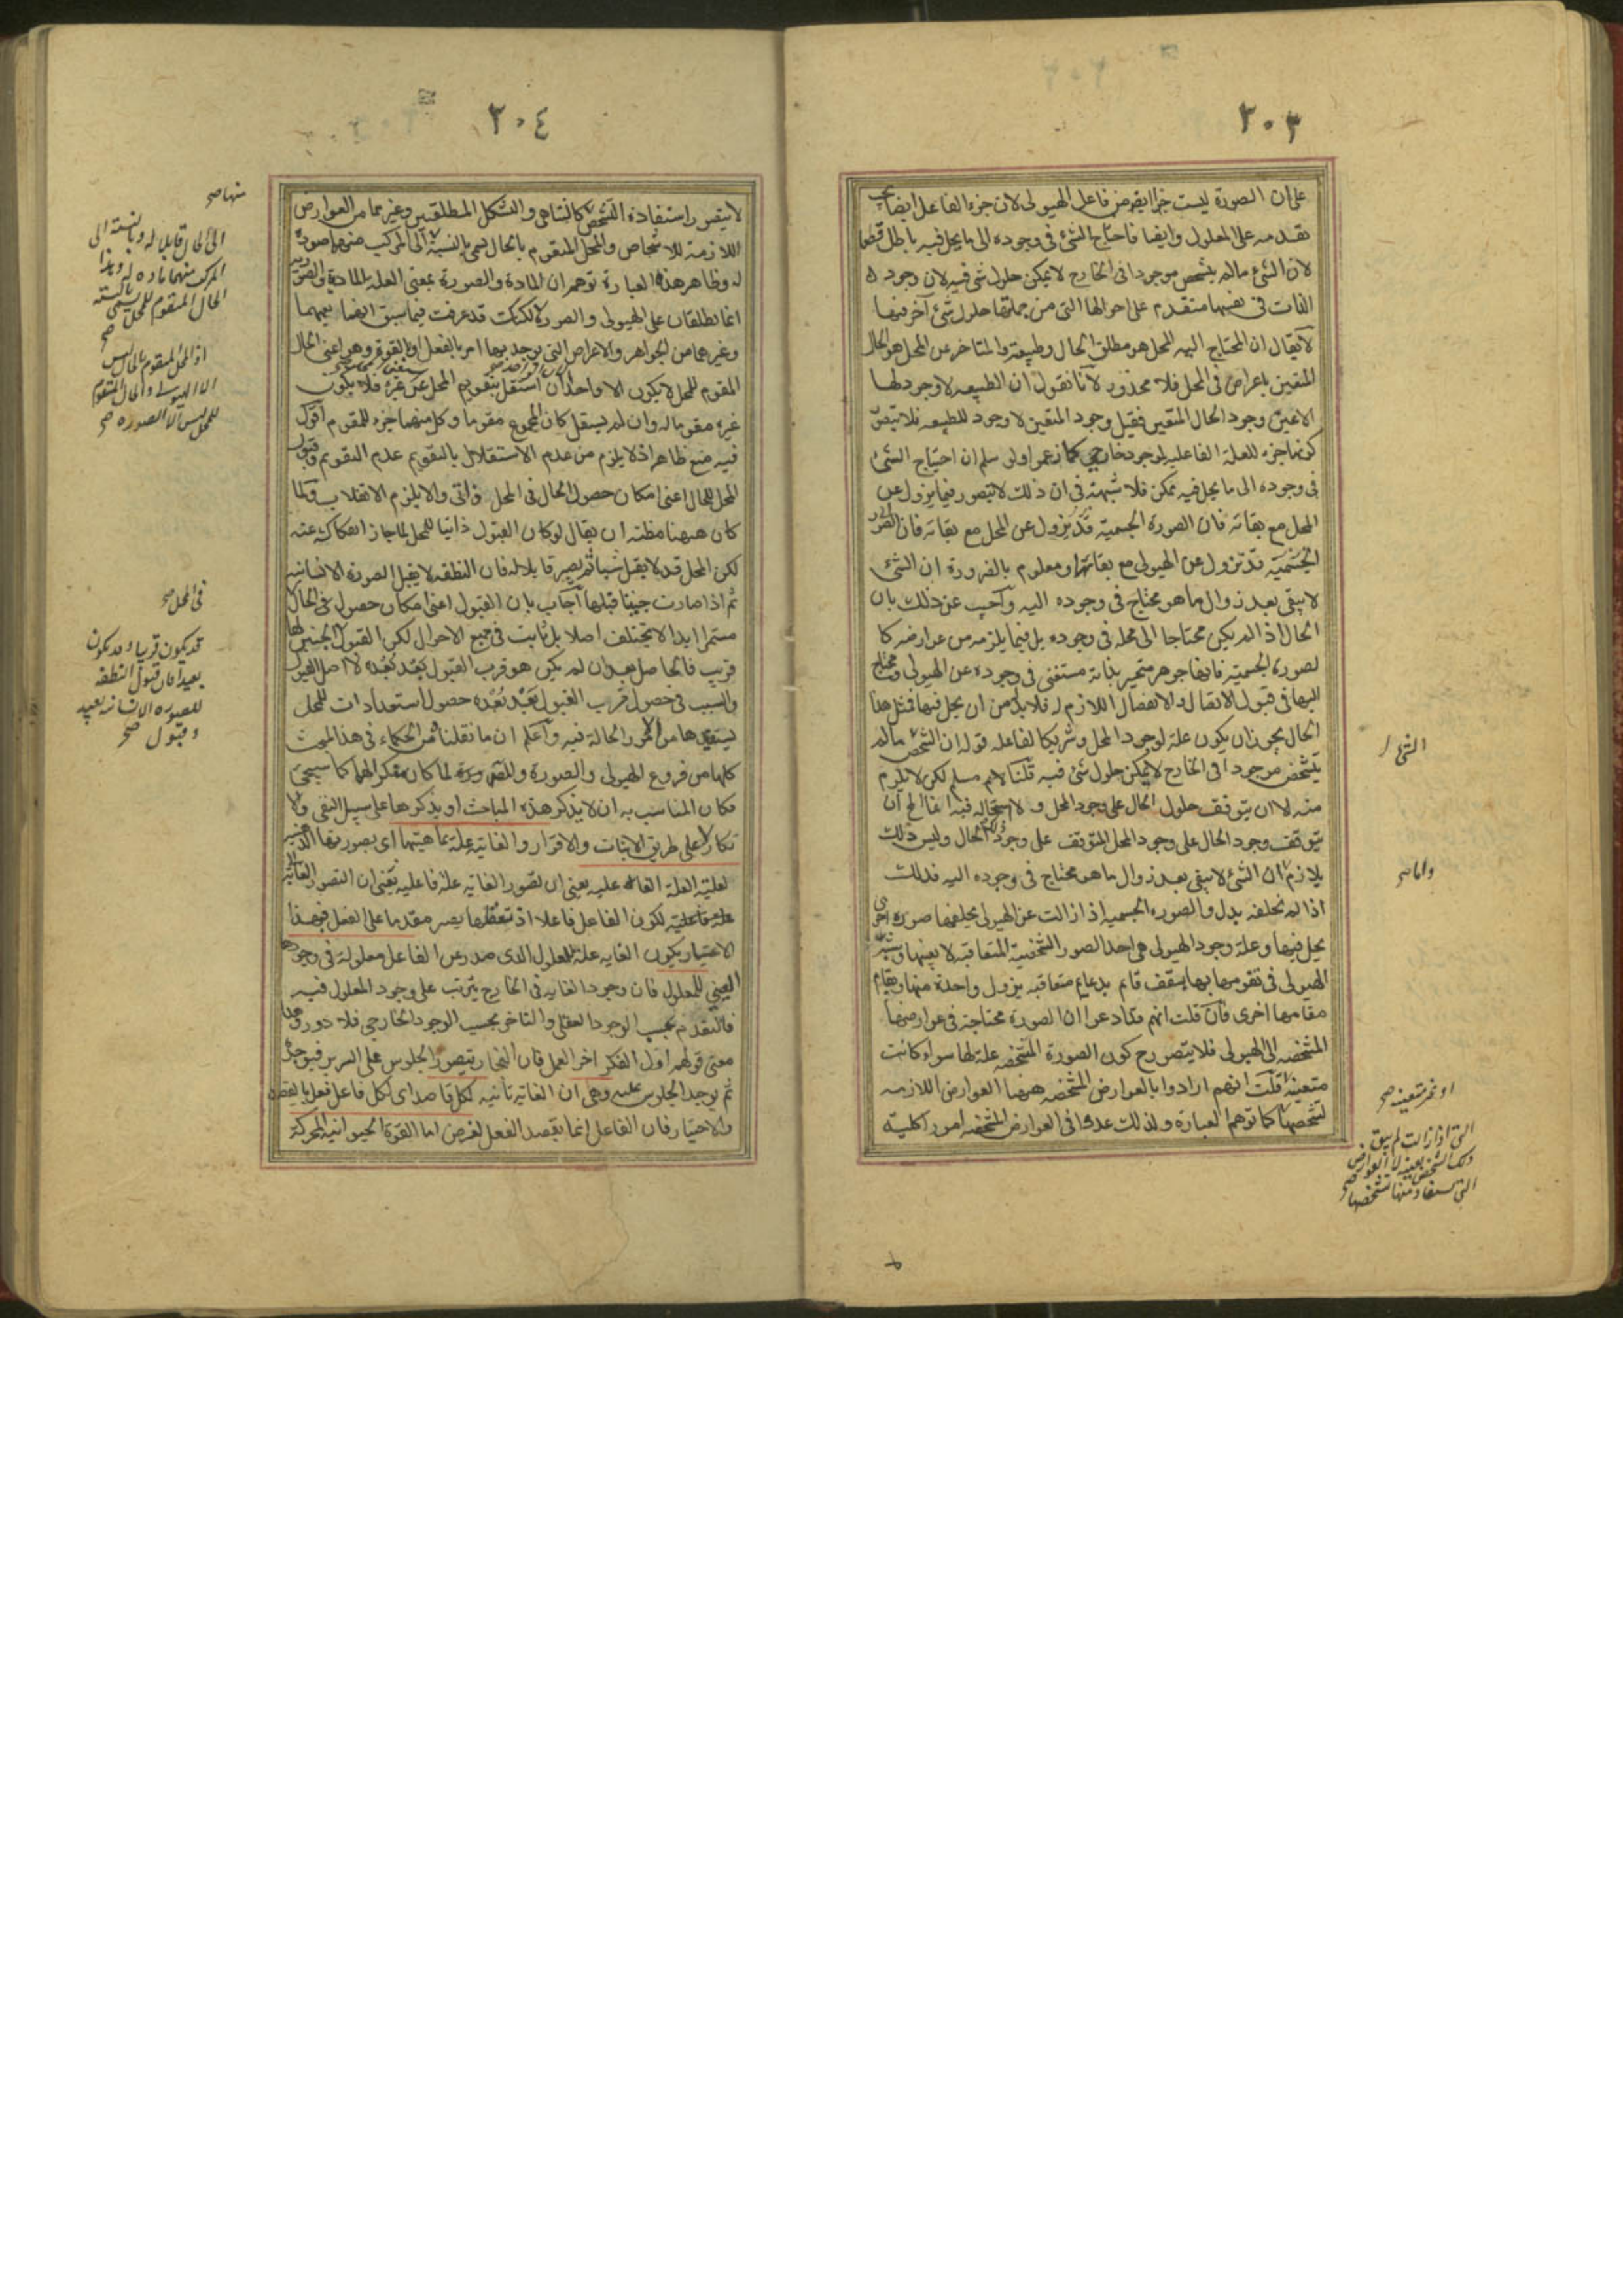 ٢٠٣
على ان الصورة ليست جزءا يفرض فاعل الهيولى لان جزء الفاعل ايضا يجب
تقدمه على المعلول وايضا فاحتياج الشئ فى وجوده الى ما يحل فيه باطل قطعا
لان الشئ ما لم يتشخص موجودا فى الخارج لا يمكن حلول شئ فيه لان وجود
الذات فى نفسها متقدم على احوالها التى من جملتها حلول شئ آخر فيها
لا يقال ان المحتاج اليه المحل هو مطلق الحال وطبيعته والمتاخر عن المحل هو الحال
المتعين باعراض فى المحل فلا محذور لانا نقول ان الطبيعه لا وجود لها
الا عين وجود الحال المتعين فقبل وجود المتعين لا وجود للطبيعه فلا يتصور
كونها جزء للعلة الفاعلية لموجود خارجى كما زعموا ولو سلم ان احتياج الشئ
فى وجوده الى ما يحل فيه ممكن فلا شبهة فى ان ذلك لا يتصور فيما يزول عن
المحل مع بقائه فان الصورة الجسمية قد يزول عن المحل مع بقائه فان الصورة
الجسمية قد تزول عن الهيولى مع بقائها ومعلوم بالضرورة ان الشئ
لا يبقى بعد زوال ما هو محتاج فى وجوده اليه واجيب عن ذلك بان
الحال اذا لم يكن محتاجا الى محله فى وجوده بل فيما يلزمه من عوارضه كا
لصورة الجسمية فانها جوهر متحيز بذاته مستغنى فى وجوده عن الهيولى ومحتاج
اليها فى قبول الاتصال والانفصال اللازم له فلا بد من ان يحل فيها فمثل هذا
الحال يجوز ان يكون علة لوجود المحل وشريكا لفاعله قوله ان الشخص ما لم
يتشخص موجودا فى الخارج لا يمكن حلول شئ فيه قلنا لانم مسلم لكن لا يلزم
منه الا ان يتوقف حلول الحال على وجود المحل ولا استحالة فيه انما المح ان
يتوقف وجود الحال على وجود المحل المتوقف على وجود الحال وليس ذلك
بلازم ان الشئ لا يبقى بعد زوال ما هو محتاج فى وجوده اليه فذلك
اذا لم يخلفه بدل والصورة الجسمية اذا زالت عن الهيولى يخلفها صورة اخرى
يحل فيها وعلة وجود الهيولى هى احد الصور الشخصية المتعاقبة لا بعينها
الهيولى فى تقومها بها بسقف قائم بدعائم متعاقبة يزول واحدة منها ويقام
مقامها اخرى فان قلت انهم قد ادعوا ان الصورة محتاجة فى عوارضها
المشخصه الى الهيولى فلا يتصور ح كون الصورة المشخصه علة لها سواء كانت
متعينة قلت انهم ارادوا بالعوارض المشخصه ههنا العوارض اللازمه
لتشخصها كما توهم العبارة ولذلك عدوا فى العوارض المشخصه امورا كلية
التى لها
واما صح
او غير متعينة صح
التى اذا زالت لم يبق
ذلك الشخص بعينه لا العوارض
التى يستفاد منها تشخصها صح
٢٠٤
لا يتصور استفادة التشخص كالتناهى والشكل المطلقين وغيرهما من العوارض
اللازمة للاشخاص والمحل المتقوم بالحال يسمى بالنسبة الى المركب منهما صورة
له وظاهر هذه العبارة توهم ان المادة والصورة بمعنى العلة المادية والصورية
انما تطلقان على الهيولى والصورة لكنك قد عرفت فيما سبق انها يعمهما
وغيرهما من الجواهر والاعراض التى يوجد بها امر بالفعل او بالقوة وهو اعنى الحال
المقوم للمحل لا يكون الا واحدا ان استقل بتقويم المحل عن غيره فلا يكون
غيره مقوما له وان لم يستقل كان المجموع مقوما وكل منهما جزء للمقوم اقول
فيه منع ظاهر اذ لا يلزم من عدم الاستقلال بالتقويم عدم التقويم وقبول
المحل للحال اعنى امكان حصول الحال فى المحل ذاتى والا يلزم الانقلاب ولما
كان ههنا مظنة ان يقال لو كان القبول ذاتيا للمحل لما جاز انفكاكه عنه
لكن المحل قد لا يقبل شيئا ثم يصير قابلا له فان النطفه لا يقبل الصورة الانسانيه
ثم اذا صارت جنينا قبلها اجاب بان القبول اعنى امكان حصول الحال
مستمرا ابدا لا يختلف اصلا بل ثابت فى جميع الاحوال لكن القبول الجنين لها
قريب فالحاصل بعد ان لم يكن هو قرب القبول بعد بعده لا اصل القبول
والسبب فى حصول قرب القبول بعد بعده حصول استعدادات للمحل
يستفيدها من الامور الحالة فيه واعلم ان ما نقلنا من الحكماء فى هذا المبحث
كلها من فروع الهيولى والصورة والمصـ لما كان منكرا لهما كما سيجئ
فكان المناسب به ان لا يذكر هذه المباحث او يذكرها على سبيل النفى والا
نكار لا على طريق الاثبات والاقرار والغاية علة بماهيتها اى بصورتها الذهنية
لعلية العلة الفاعليه يعنى ان تصور الغاية علة فاعليه يعنى ان التصور الغاية
علة فاعلية لكون الفاعل فاعلا اذ تعقلها يصير مقدما على الفعل فبهذا
الاعتبار يكون الغايه علة للمعلول الذى صدر عن الفاعل معلولة فى وجودها
العينى للمعلول فان وجود الغاية فى الخارج يترتب على وجود المعلول فيه
فالتقدم بحسب الوجود العقلى والتاخر بحسب الوجود الخارجى فلا دور وهذا
معنى قولهم اول الفكر اخر العمل فان النجار يتصور الجلوس على السرير فيوجده
ثم يوجد الجلوس عليه وهى ان الغاية ثابتة لكل قاصد اى لكل فاعل فعل بالقصد
والاختيار فان الفاعل انما يقصد الفعل لغرض اما القوة الحيوانية المحركة
منها صح
الى الحال قابلا له وبالنسبة الى
المركب منهما مادة له وهذا
الحال المتقوم للمحل يسمى بالنسبة صح
اذ المحل المتقوم بالحال ليس
الا الهيولى والحال المقوم
للمحل ليس الا الصورة صح
فى المحل صح
قد يكون قريبا وقد يكون
بعيدا فان قبول النطفه
للصورة الانسانية بعيد
وقبول صح